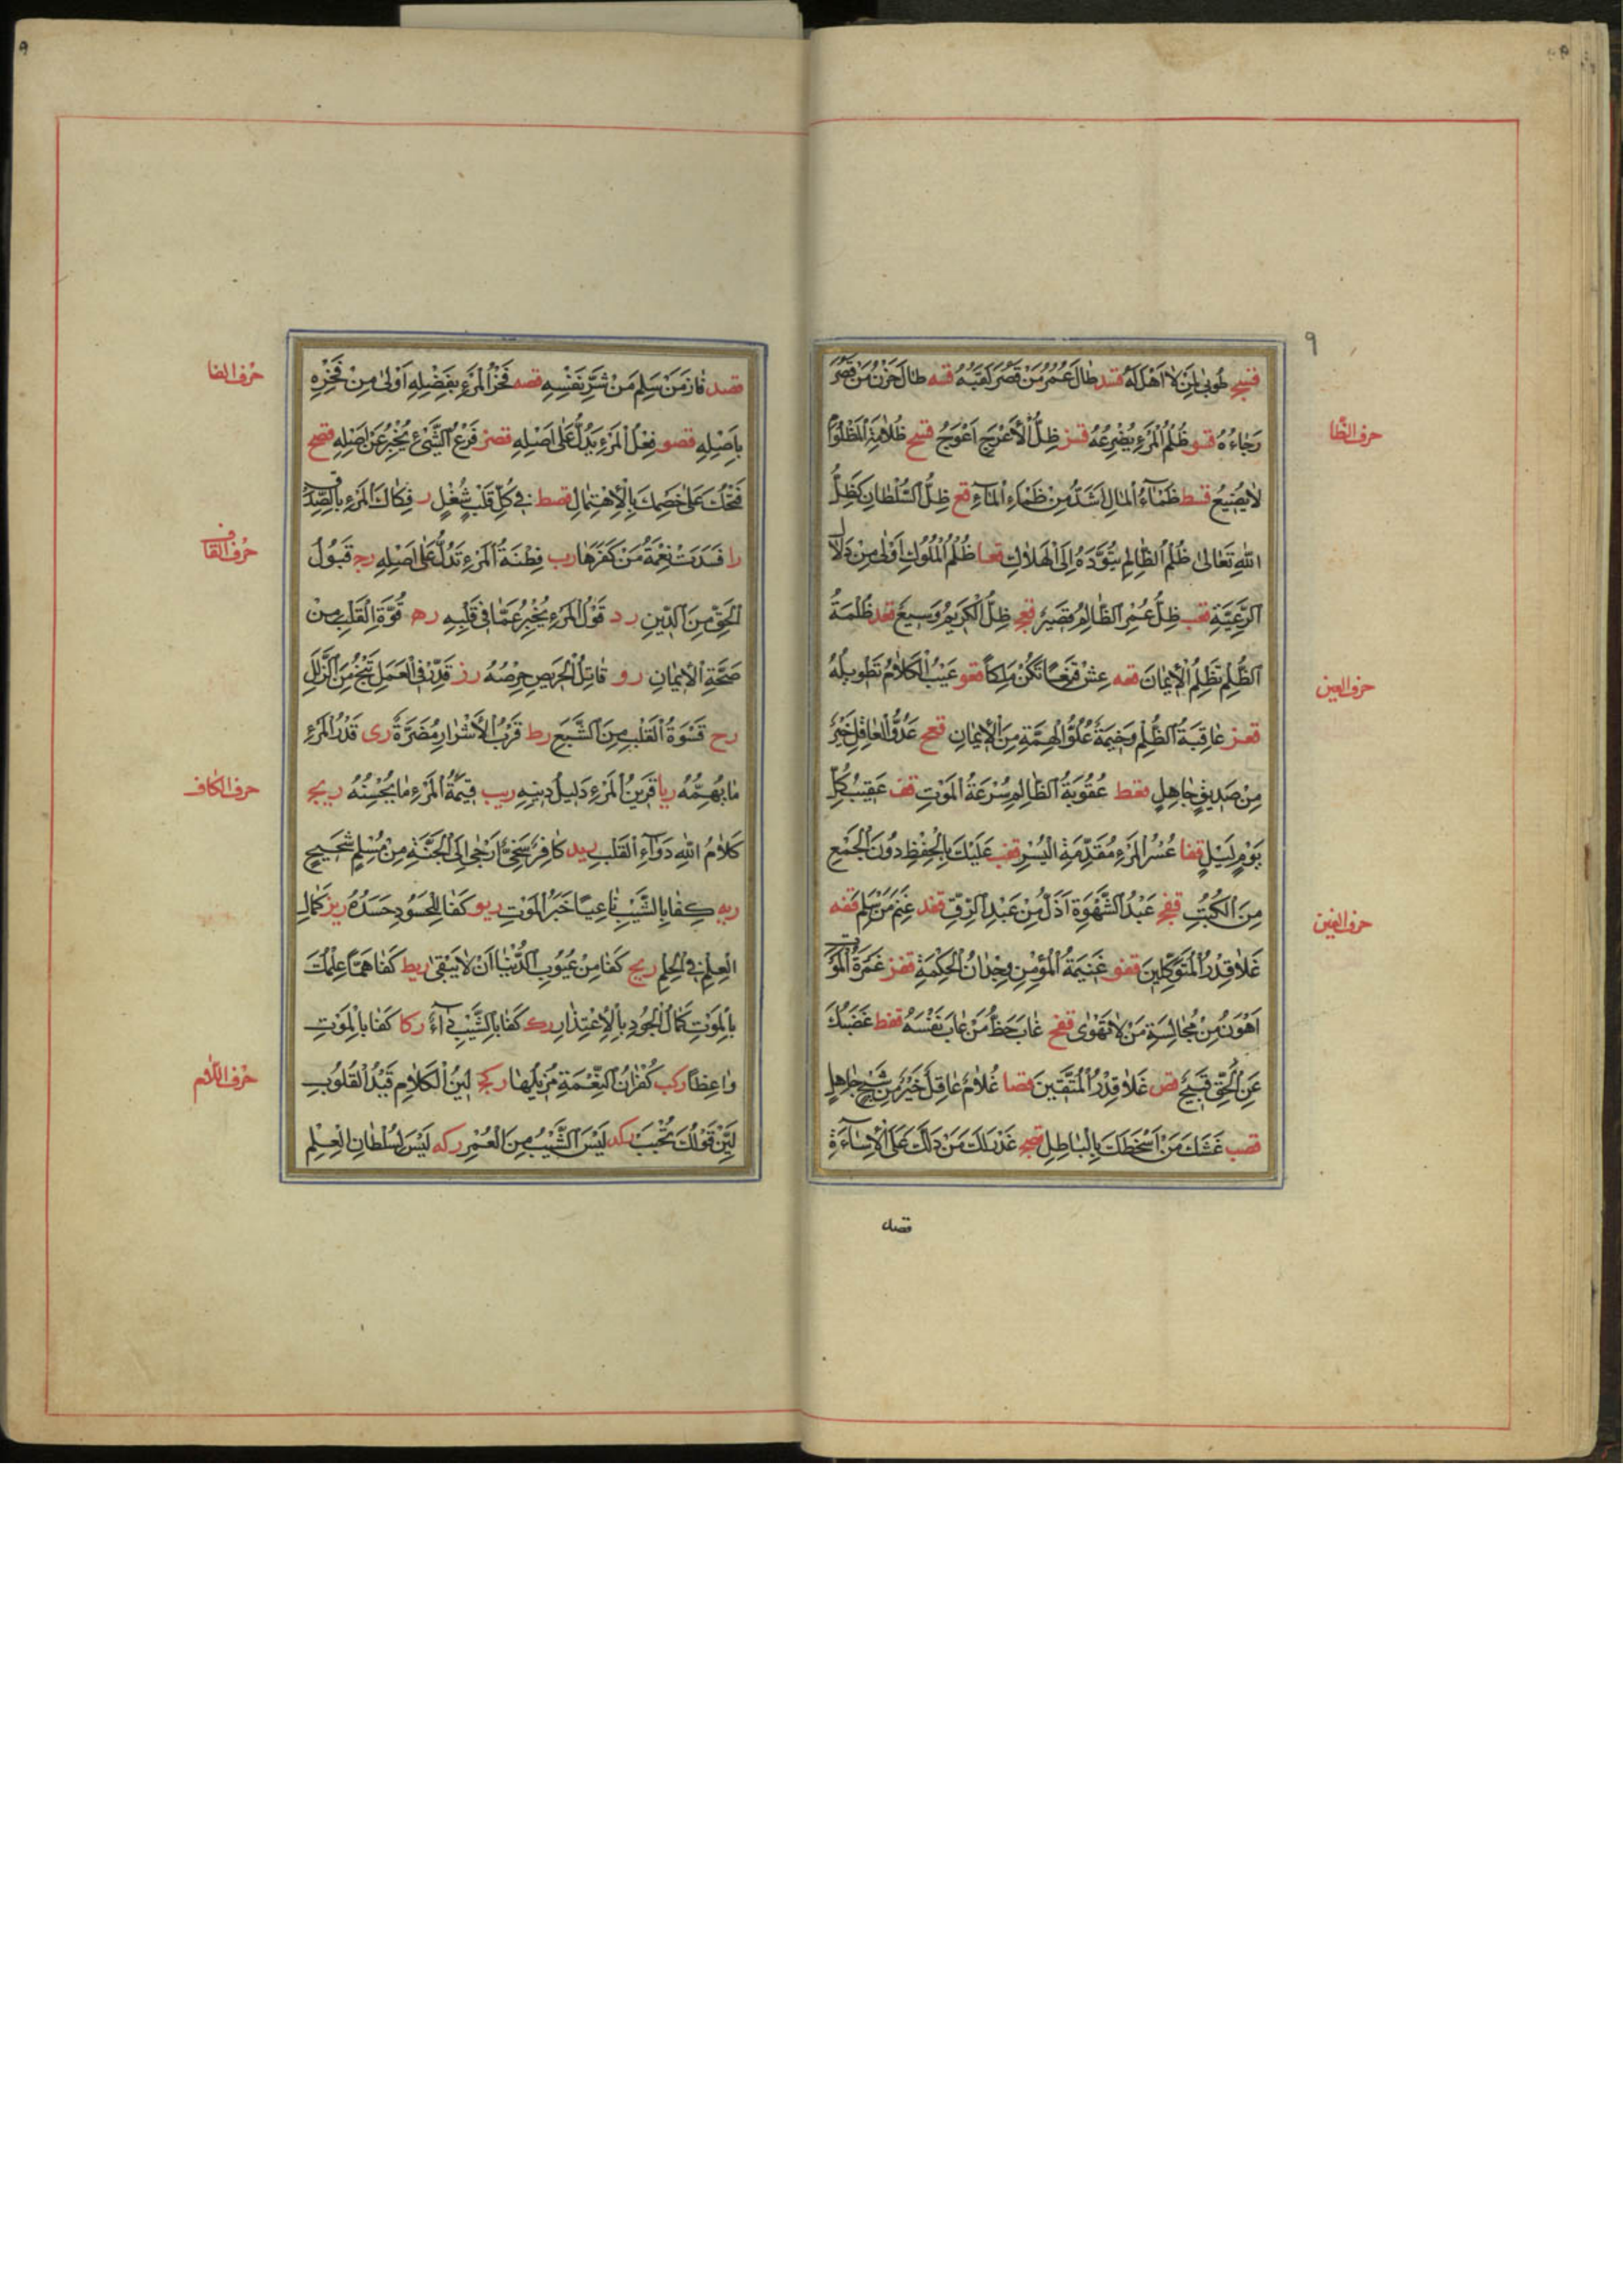 ٩
قسج طُوبىٰ لِمَنْ لاٰ اَهْلَ لَهُ قسد طٰالَ عُمْرُ مَنْ قَصُرَ تَعَبُهُ قسه طٰالَ حَزْنُ مَنْ قَصُرَ
رَجٰاءُهُ قسو ظُلْمُ الْمَرْءِ يُصْرِعُهُ قسز ظِلُّ الْأَعْرَجِ اَعْوَجُ قسح ظُلاٰمَةُ الْمَظْلُومِ
حرف الظّا
لاٰ يَضِيعُ قسط ظَمَآءُ الْمٰالِ اَشَدُّ مِنْ ظَمَاءِ الْمٰآءِ قع ظِلُّ السُّلْطٰانِ كَظِلِّ
اللّٰهِ تَعٰالىٰ ظُلْمُ الظّٰالِمِ يَقُودُهُ اِلَى الْهَلاٰكِ قعا ظُلْمُ الْمُلُوكِ اَوْلىٰ مِنْ دَلاٰلِ
الرَّعِيَّةِ قعب ظِلُّ عُمْرِ الظّٰالِمِ قَصِيرٌ قعج ظِلُّ الْكَرِيمِ وَسِيعٌ قعد ظُلْمَةُ
الظُّلْمِ تُظْلِمُ الْأِيمٰانَ قعه عِشْ قَنِعًا تَكُنْ مَلِكًا قعو عَيْبُ الْكَلاٰمِ تَطْوِيلُهُ
حرف العين
قعز عٰاقِبَةُ الظُّلْمِ وَخِيمَةٌ عُلُوُّ الْهِمَّةِ مِنَ الْأِيمٰانِ قعح عَدُوُّ الْعٰاقِلِ خَيْرٌ
مِنْ صَدِيقٍ جٰاهِلٍ قعط عُقُوبَةُ الظّٰالِمِ سُرْعَةُ الْمَوْتِ قف عَقِيبُ كُلِّ
يَوْمٍ لَيْلٍ قفا عُسْرُ الْمَرْءِ مُقَدِّمَةِ الْيُسْرِ قفب عَلَيْكَ بِالْحِفْظِ دُونَ الْجَمْعِ
مِنَ الْكُتُبِ قفج عَبْدُ الشَّهْوَةِ اَذَلُّ مِنْ عَبْدِ الرِّقِّ قفد غَنِمَ مَنْ سَلِمَ قفه
حرف الغين
غَلاٰ قَدْرُ الْمُتَوَكِّلِينَ قفو غَنِيمَةُ الْمُؤْمِنِ وِجْدٰانُ الْحِكْمَةِ قفز غَمْرَةُ الْمَوْتِ
اَهْوَنُ مِنْ مُجٰالَسَةِ مَنْ لاٰ تَهْوٰى قفح غٰابَ حَظُّ مَنْ غٰابَ نَفْسَهُ قفط غَضَبُكَ
عَنِ الْحَقِّ قَبِيحٌ قص غَلاٰ قَدْرُ الْمُتَّقِينَ قصا غُلاٰمٌ عٰاقِلٌ خَيْرٌ مِنْ شَيْخٍ جٰاهِلٍ
قصب غَشَّكَ مَنْ اَسْخَطَكَ بِالْبٰاطِلِ قصج غَدَرَكَ مَنْ دَلَّكَ عَلَى الْأِسٰآءَةِ
قصد
٩
قصد فٰازَ مَنْ سَلِمَ مَنْ شَرِّ نَفْسِهِ قصه فَخْرُ الْمَرْءِ بِفَضْلِهِ اَوْلىٰ مِنْ فَخْرِهِ
حرف الفا
بِاَصْلِهِ قصو فِعْلُ الْمَرْءِ يَدُلُّ عَلٰى اَصْلِهِ قصز فَرْعُ الشَّيْءِ يُخْبِرُ عَنْ اَصْلِهِ قصح
فَتْحُكَ عَلىٰ خَصْمِكَ بِالْاِحْتِمٰالِ قصط فِي كُلِّ قَلْبٍ شُغْلٍ ر فِكٰاكُ الْمَرْءِ بِالصِّدْقِ
را فَسَدَتْ نِعْمَةُ مَنْ كَفَرَهٰا رب فِطْنَةُ الْمَرْءِ تَدُلُّ عَلٰى اَصْلِهِ رج قَبُولُ
حرف القاف
الْحَقِّ مِنَ الدِّينِ رد قَوْلُ الْمَرْءِ يُخْبِرُ عَمّٰا فِي قَلْبِهِ ره قُوَّةُ الْقَلْبِ مِنْ
صِحَّةِ الْأِيمٰانِ رو قٰاتِلُ الْحَرِيصِ حِرْصُهُ رز قَدِّرْ فِي الْعَمَلِ تَنْجُ مِنَ الزَّلَلِ
رح قَسْوَةُ الْقَلْبِ مِنَ الشَّبَعِ رط قُرْبُ الْأَشْرٰارِ مُضَرَّةٌ رى قَدْرُ الْمَرْءِ
مٰا يُهِمُّهُ ريا قَرِينُ الْمَرْءِ دَلِيلُ دِينِهِ ريب قِيمَةُ الْمَرْءِ مٰا يُحْسِنُهُ ريج
حرف الكاف
كَلاٰمُ اللّٰهِ دَوٰآءُ الْقَلْبِ ريد كٰافِرٌ سَخِيٌّ اَرْجٰى اِلَى الْجَنَّةِ مِنْ مُسْلِمٍ شَحِيحٍ
ريه كَفٰا بِالشَّيْبِ نٰاعِيًا خَبَرُ الْمَوْتِ ريو كَفٰا لِلْحَسُودِ حَسَدُهُ ريز كَمٰالُ
الْعِلْمِ فِي الْحِلْمِ ريح كَفٰا مِنْ عُيُوبِ الدُّنْيٰا اَنْ لاٰ يَبْقىٰ ريط كَفٰا هَمًّا عِلْمُكَ
بِالْمَوْتِ كَمٰالُ الْجُودِ بِالْاِعْتِذٰارِ رك كَفٰا بِالشَّيْبِ دٰآءً ركا كَفٰا بِالْمَوْتِ
وٰاعِظًا ركب كُفْرٰانُ النِّعْمَةِ مُزِيلُهٰا ركج لِينُ الْكَلاٰمِ قَيْدُ الْقُلُوبِ
حرف اللّام
لَيِّنْ قَوْلَكَ تُحَبَّ ركد لَيْسَ الشَّيْبُ مِنَ الْعُمْرِ ركه لَيْسَ لِسُلْطٰانِ الْعِلْمِ